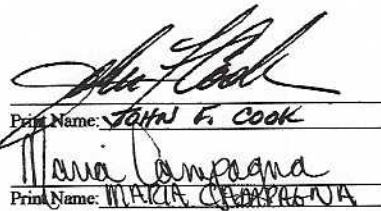 John F Cook
Print Name: JOHN F. COOK
Maria Campagna
Print Name: MARIA CAMPAGNA